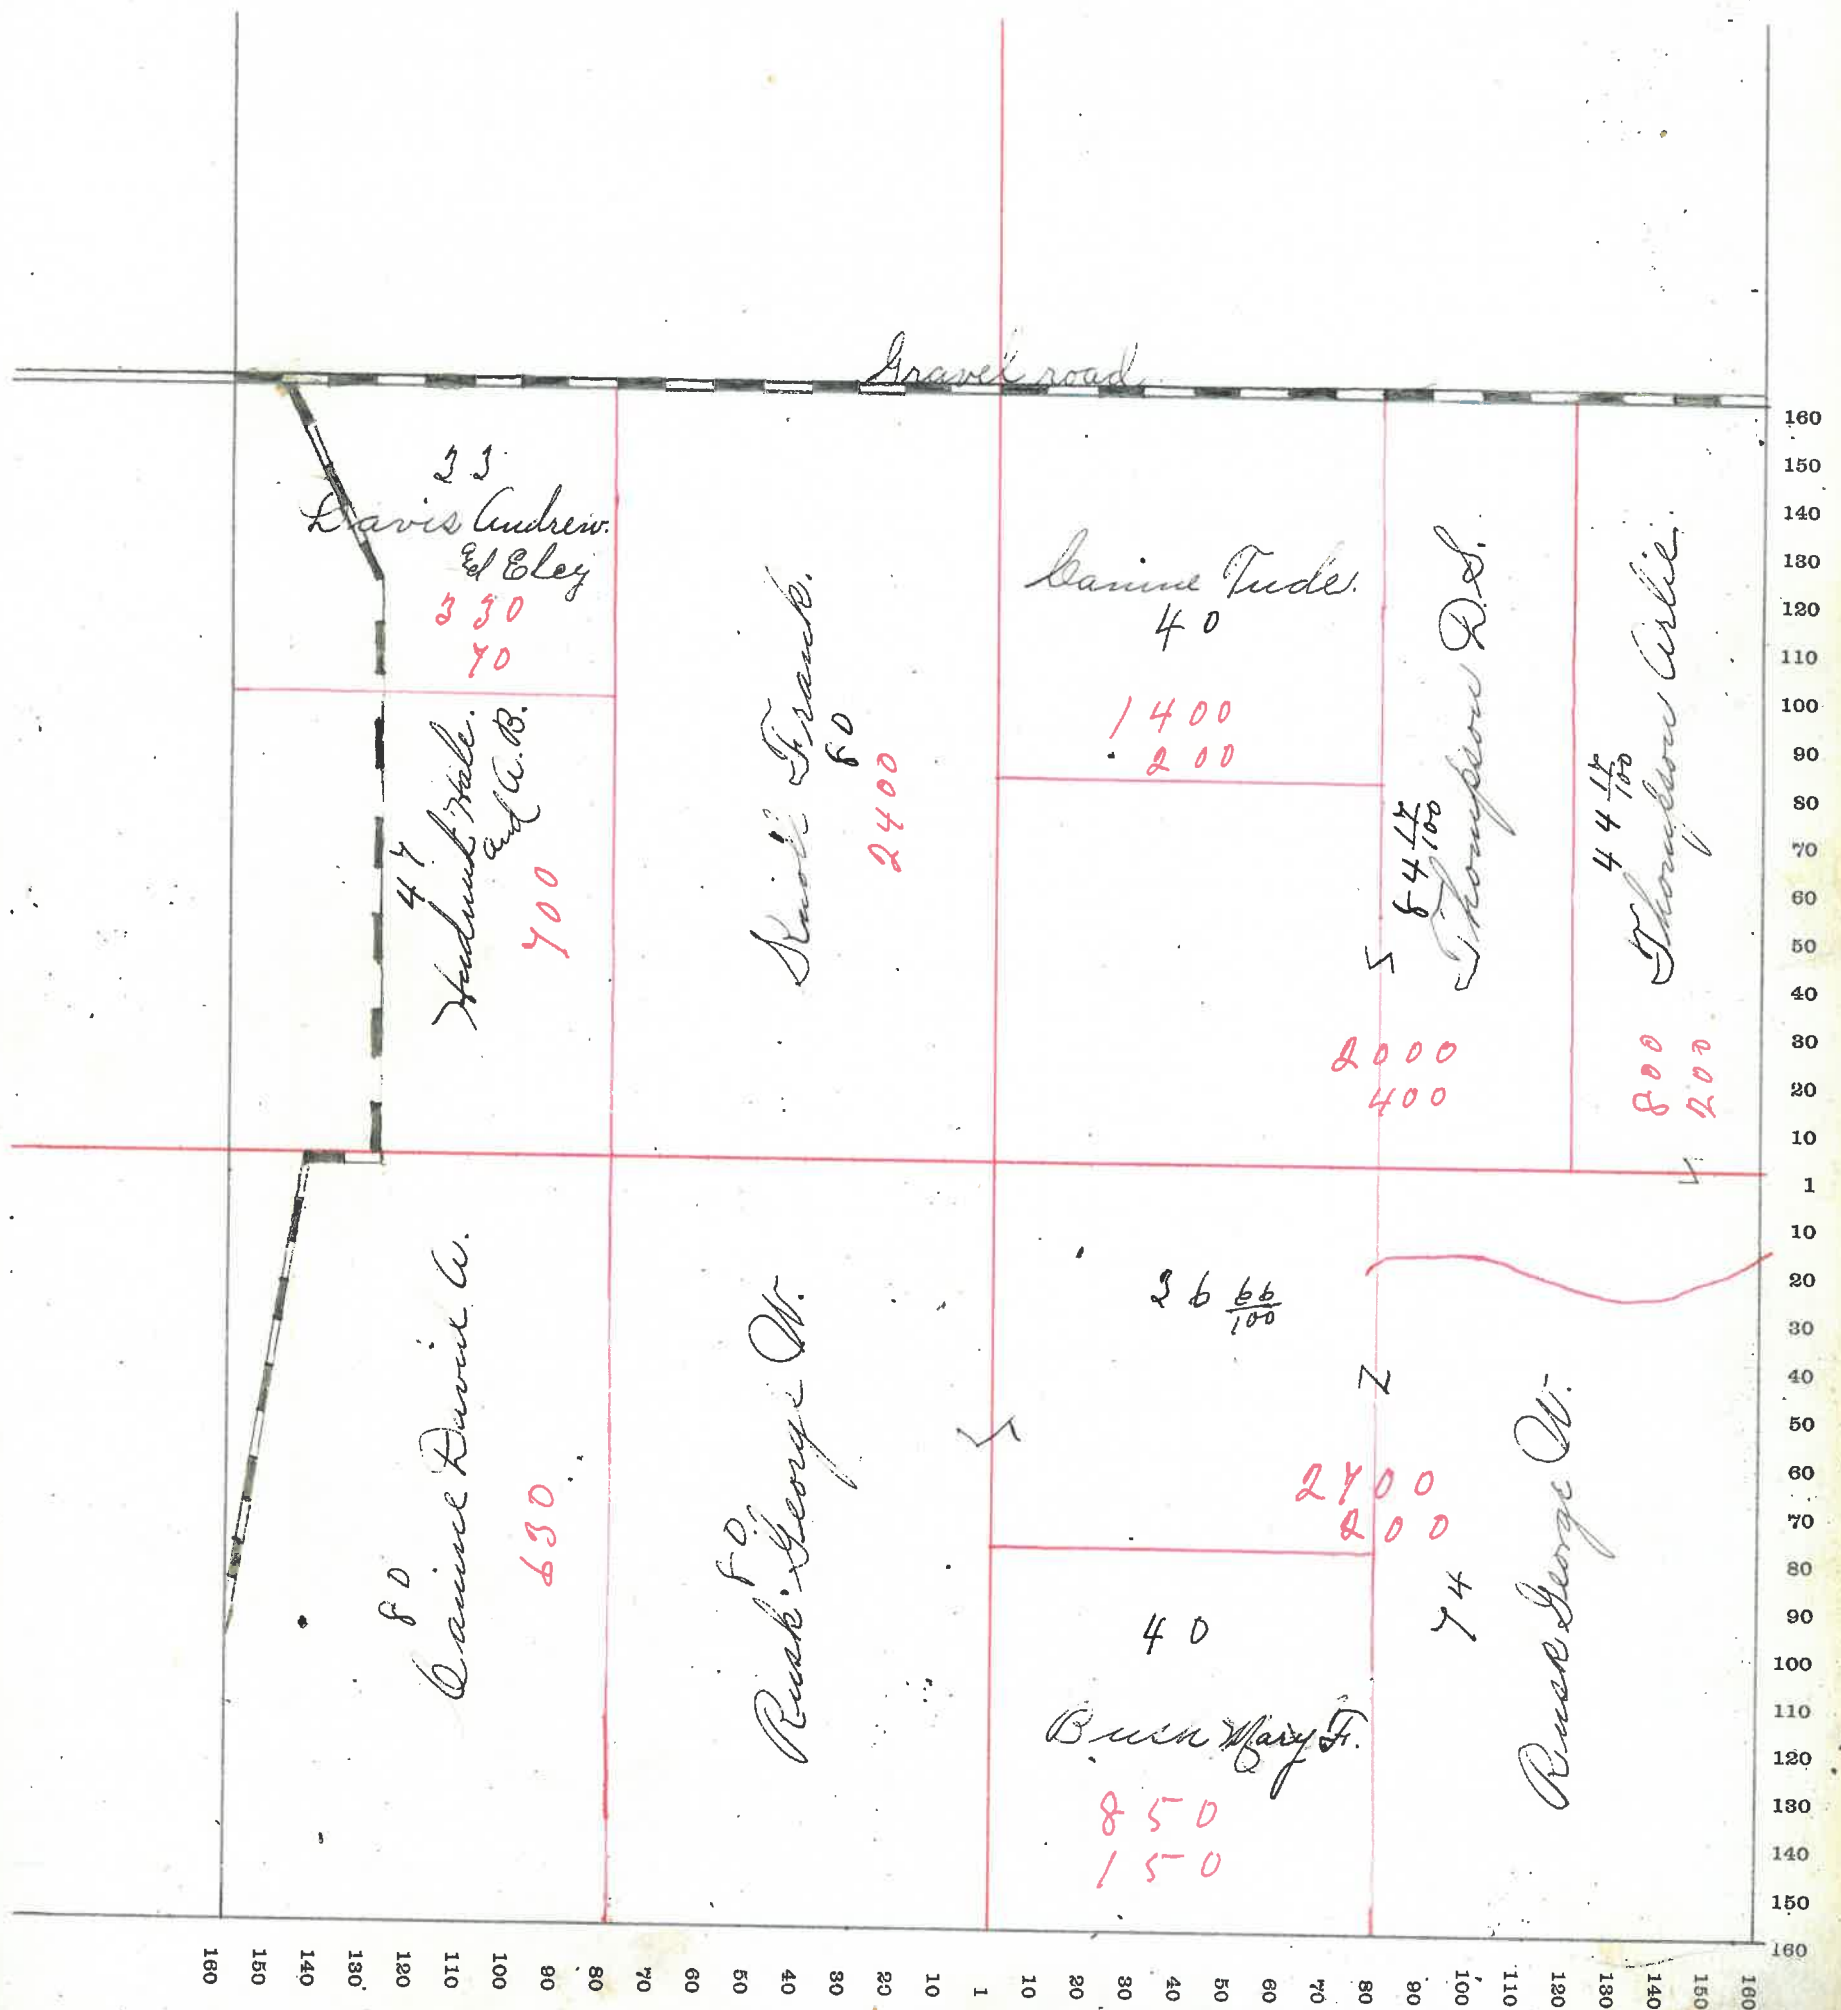 Gravel road
33
Davis Andrew.
Ed Eley
330
70
47
Hale.
and A.B.
700
Frank.
80
2400
Canine Tude.
40
1400
200
84 17/100
Thompson D.S.
2000
400
44 17/100
Thompson Arlie.
800
200
80
Canine David A.
630
80
Rusk George W.
36 66/100
2700
200
40
Bush Mary F.
850
150
74
Rusk George W.
160
150
140
130
120
110
100
90
80
70
60
50
40
30
20
10
1
10
20
30
40
50
60
70
80
90
100
110
120
130
140
150
160
160 150 140 130 120 110 100 90 80 70 60 50 40 30 20 10 1 10 20 30 40 50 60 70 80 90 100 110 120 130 140 150 160